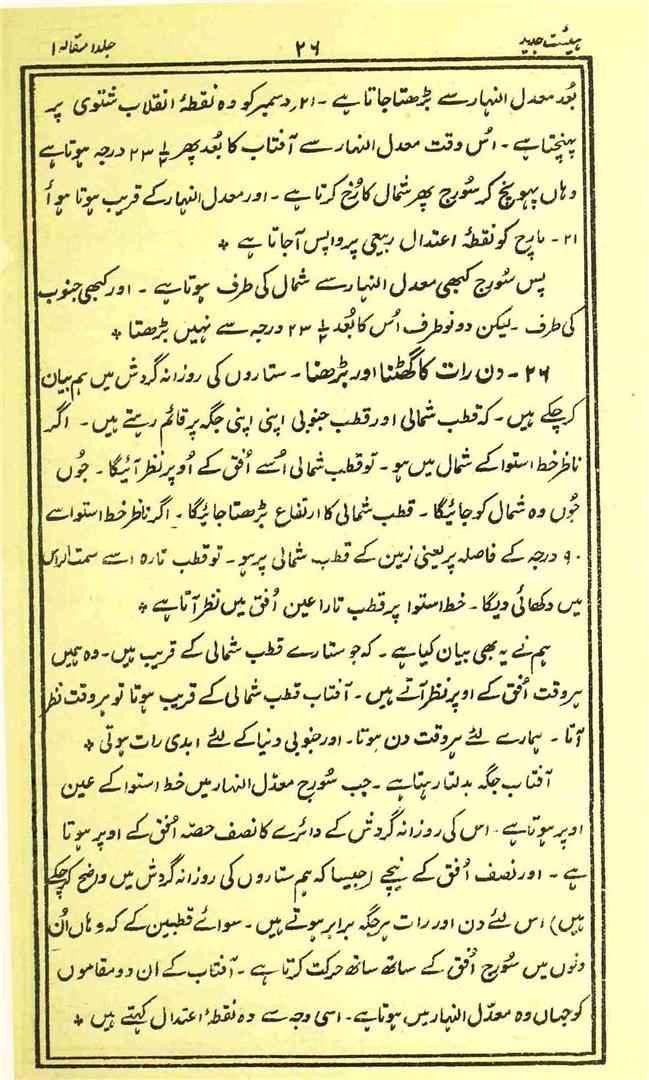 ہیئت جدید ۲۶ جلد ۱ مقالہ ۱
بُعد معدل النہار سے بڑھتا جاتا ہے ۔ ۲۱؍ دسمبر کو وہ نقطۂ انقلاب شتوی پر
پہنچتا ہے ۔ اُس وقت معدل النہار سے آفتاب کا بُعد پھر ½ ۲۳ درجہ ہوتا ہے
وہاں پہونچ کر سُورج پھر شمال کا رُخ کرتا ہے ۔ اور معدل النہار کے قریب ہوتا ہوٴا
۲۱ ۔ مارچ کو نقطۂ اعتدال ربیعی پر واپس آجاتا ہے *
پس سُورج کبھی معدل النہار سے شمال کی طرف ہوتا ہے ۔ اور کبھی جنوب
کی طرف ۔ لیکن دونو طرف اُس کا بُعد ½ ۲۳ درجہ سے نہیں بڑھتا *
۲۶ ۔ دن رات کا گھٹنا اور بڑھنا ۔ ستاروں کی روزانہ گردش میں ہم بیان
کر چکے ہیں ۔ کہ قطب شمالی اور قطب جنوبی اپنی اپنی جگہ پر قائم رہتے ہیں ۔ اگر
ناظر خط استوا کے شمال میں ہو ۔ تو قطب شمالی اُسے اُفق کے اُوپر نظر آئیگا ۔ جُوں
جُوں وہ شمال کو جائیگا ۔ قطب شمالی کا ارتفاع بڑھتا جائیگا ۔ اگر ناظر خط استوا سے
۹۰ درجہ کے فاصلہ پر یعنی زمین کے قطب شمالی پر ہو ۔ تو قطب تارہ اسے سمت الراس
میں دکھائی دیگا ۔ خط استوا پر قطب تارا عین اُفق میں نظر آتا ہے *
ہم نے یہ بھی بیان کیا ہے ۔ کہ جو ستارے قطب شمالی کے قریب ہیں ۔ وہ ہمیں
ہر وقت اُفق کے اوپر نظر آتے ہیں ۔ آفتاب قطب شمالی کے قریب ہوتا تو ہر وقت نظر
آتا ۔ ہمارے لئے ہر وقت دن ہوتا ۔ اور جنوبی دنیا کے لئے ابدی رات ہوتی *
آفتاب جگہ بدلتا رہتا ہے ۔ جب سُورج معدّل النہار میں خط استوا کے عین
اوپر ہوتا ہے ۔ اس کی روزانہ گردش کے دائرے کا نصف حصّہ اُفق کے اوپر ہوتا
ہے ۔ اور نصف اُفق کے نیچے (جیسا کہ ہم ستاروں کی روزانہ گردش میں واضح کر چکے
ہیں) اس لئے دن اور رات ہر جگہ برابر ہوتے ہیں ۔ سوائے قطبین کے کہ وہاں اُن
دنوں میں سُورج اُفق کے ساتھ ساتھ حرکت کرتا ہے ۔ آفتاب کے ان دو مقاموں
کو جہاں وہ معدّل النہار میں ہوتا ہے ۔ اسی وجہ سے وہ نقطۂ اعتدال کہتے ہیں *